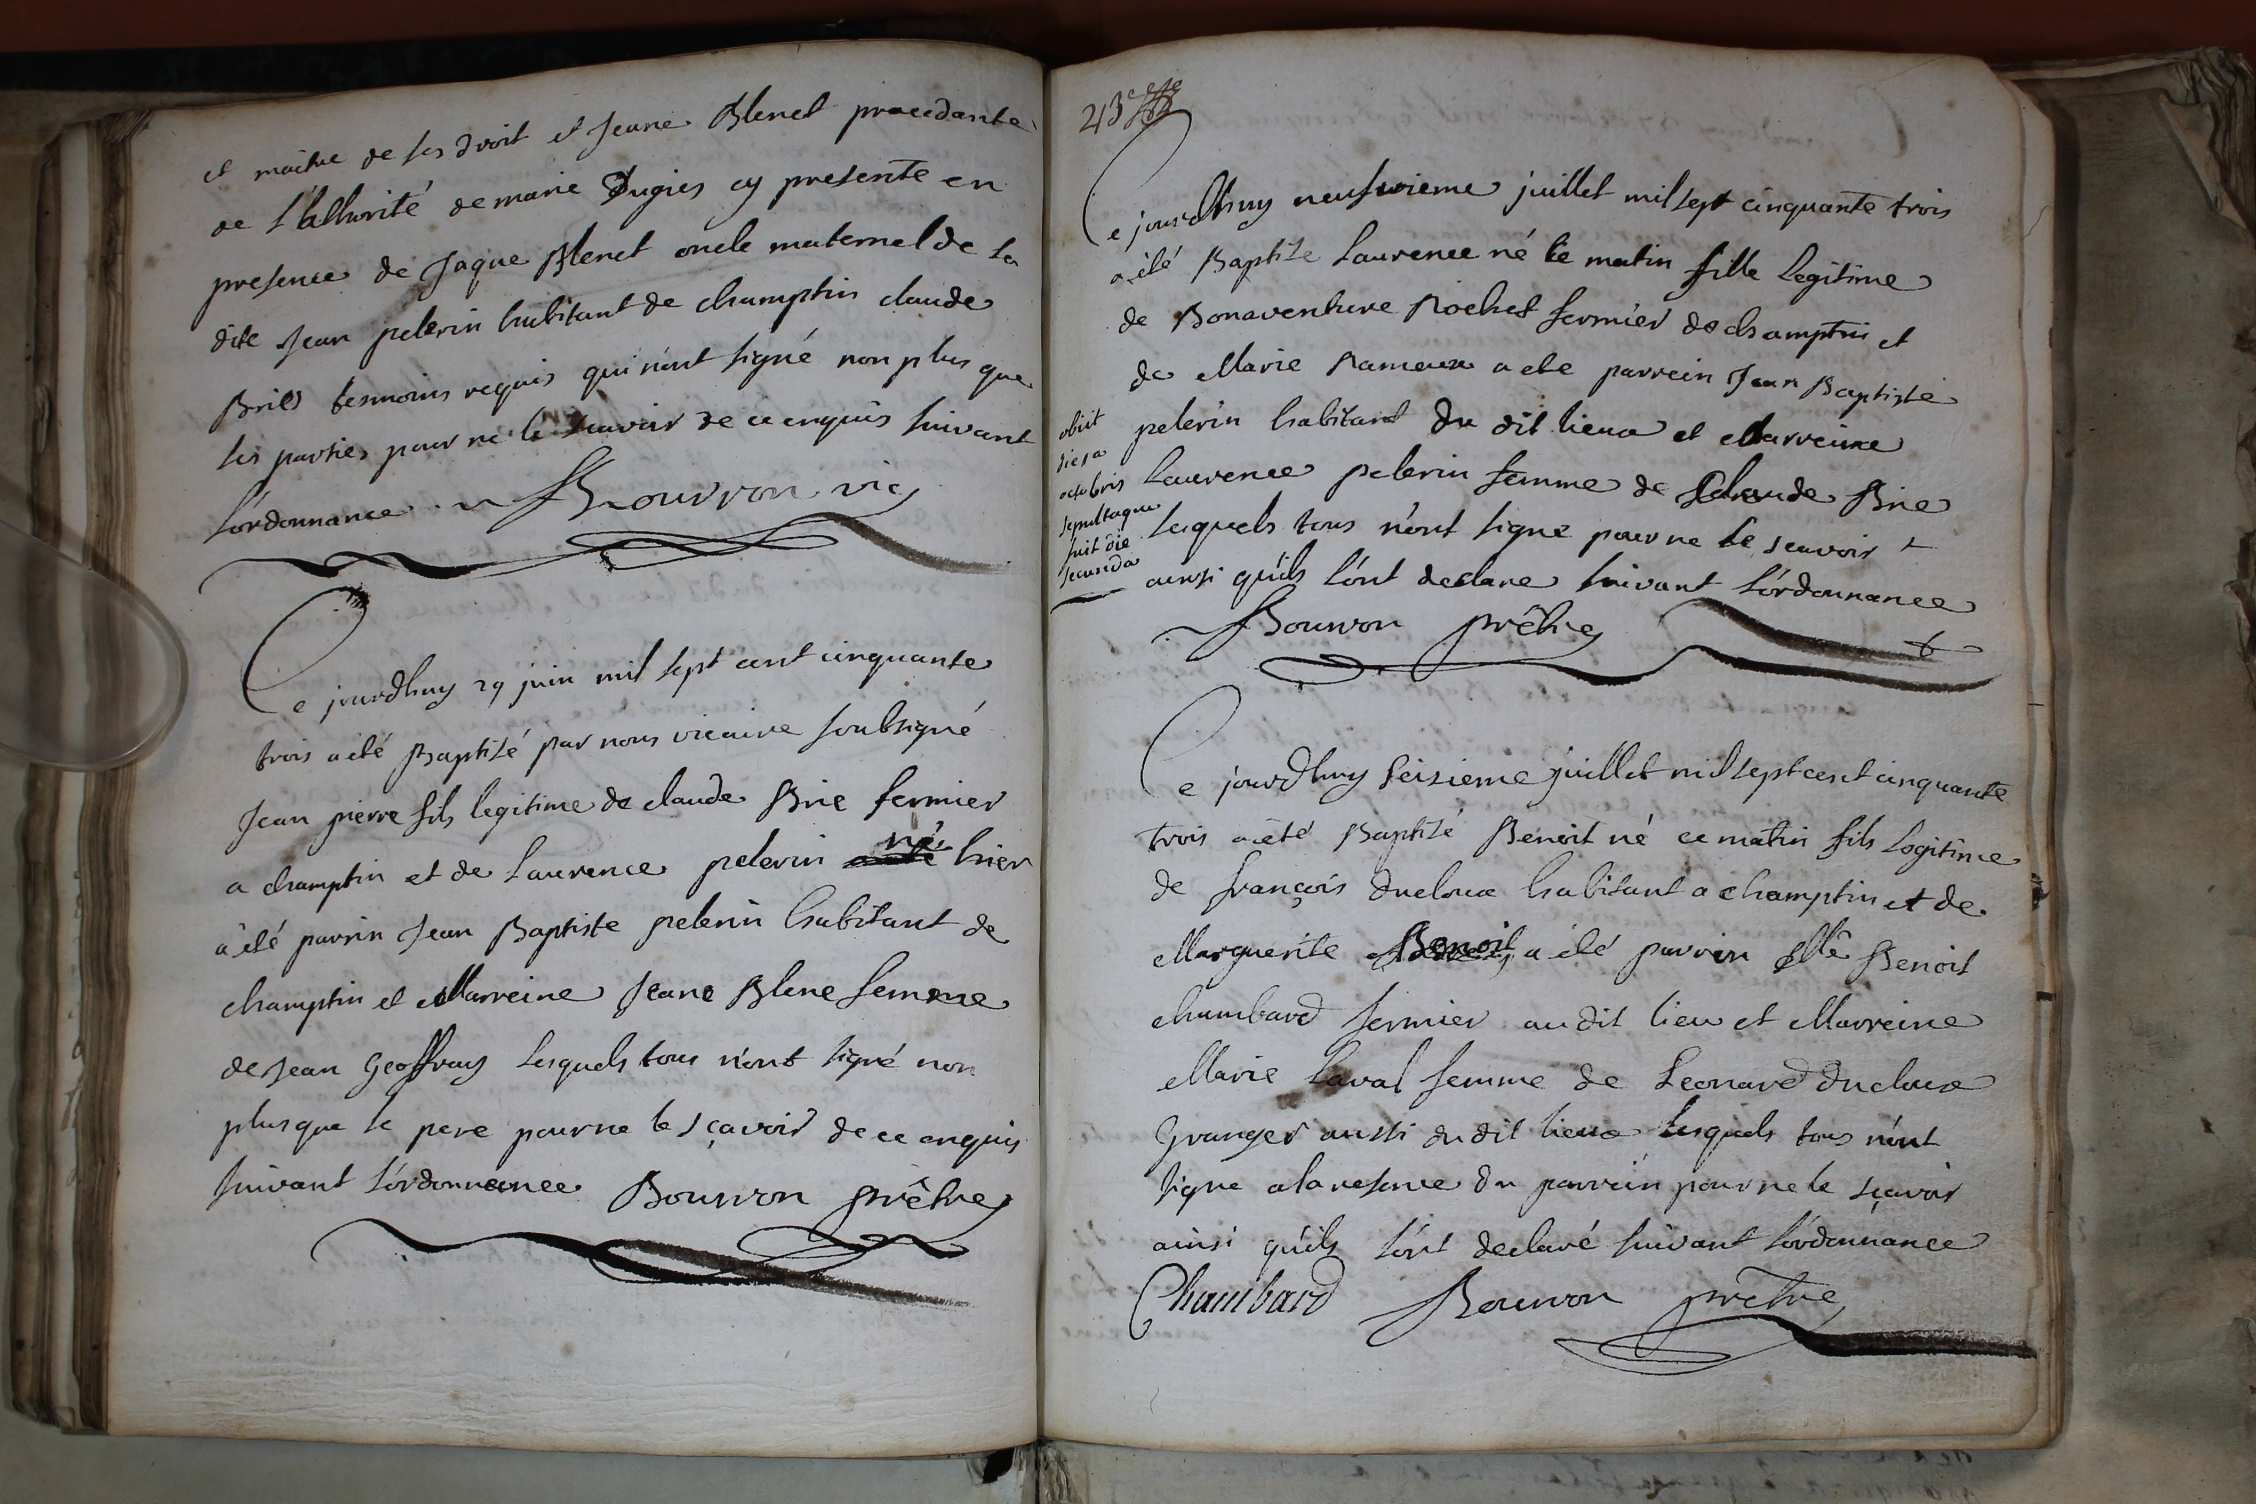 et maitre de ses droit et Jeane Blenet procedante
de l'athorité de marie Dugies cy presente en
presence de Jaque Blenet oncle maternel de la
dite Jean pelerin habitant de champtin claude
Brie tesmoins requis qui n'ont signé non plus que
les parties pour ne le scavoir de ce enquis suivant
l'ordonnance Bouvron vic
Ce jourdhuy 29 juin mil sept cent cinquante
trois a été Baptisé par nous vicaire soubsigné
Jean pierre fils legitime de claude Brie fermier
a champtin et de Laurence pelerin né hier
a été parrin Jean Baptiste pelerin habitant de
champtin et Marreine Jeane Blene femme
de Jean Geoffray lesquels tous n'ont signé non
plus que le pere pour ne le sçavoir de ce enquis
suivant l'ordonnance Bouvron prêtre
43e
Ce jourdhuy neufvieme juillet mil sept cinquante trois
a été Baptise Laurence né le matin fille Legitime
de Bonaventure Rochet fermier de champtin et
de Marie Rameau a ete parrein Jean Baptiste
pelerin habitant du dit lieux et Marreine
Laurence pelerin femme de Claude Brie
lesquels tous n'ont signe pour ne le scavoir
ainsi quils l'ont declare suivant l'ordonnance
Bouvron prêtre
obiit
die 1a
octobris
sepultaque
fuit die
secunda
Ce jourdhuy seizieme juillet mil sept cent cinquante
trois a été Baptisé Benoit né ce matin fils Legitime
de françois ducloux habitant a champtin et de
Marguerite Benoit a été parrin Me Benoit
chambard fermier audit lieu et Marreine
Marie Laval femme de Leonard ducloux
Granger aussi du dit lieux lesquels tous n'ont
signe a la reserve du parrein pour ne le sçavoir
ainsi quils l'ont declaré suivant l'ordonnance
Chambard Bouvron prêtre